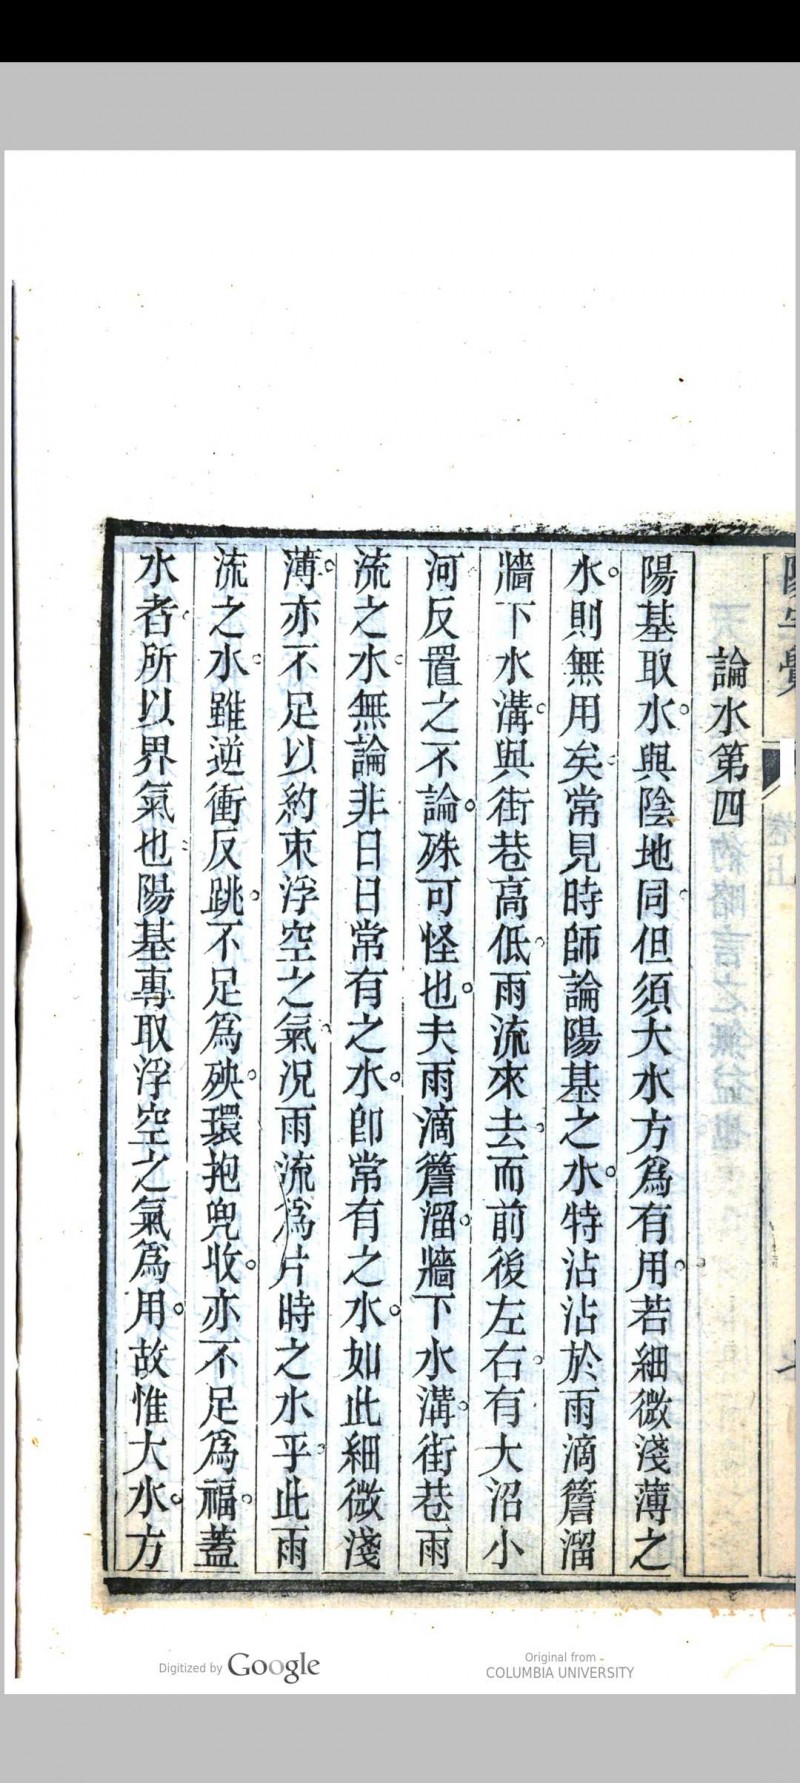 論水第四
陽基取水與陰地同但須大水方爲有用若細微淺薄之
水則無用矣常見時師論陽基之水特沾沾於雨滴簷溜
牆下水溝與街巷高低雨流來去而前後左右有大沼小
河反置之不論殊可怪也夫雨滴簷溜牆下水溝街巷雨
流之水無論非日日常有之水卽常有之水如此細微淺
薄亦不足以約束浮空之氣況雨流爲片時之水乎此雨
流之水雖逆衝反跳不足爲殃環抱兜收亦不足爲福蓋
水者所以界氣也陽基專取浮空之氣爲用故惟大水方
Digitized by Google
Original from
COLUMBIA UNIVERSITY